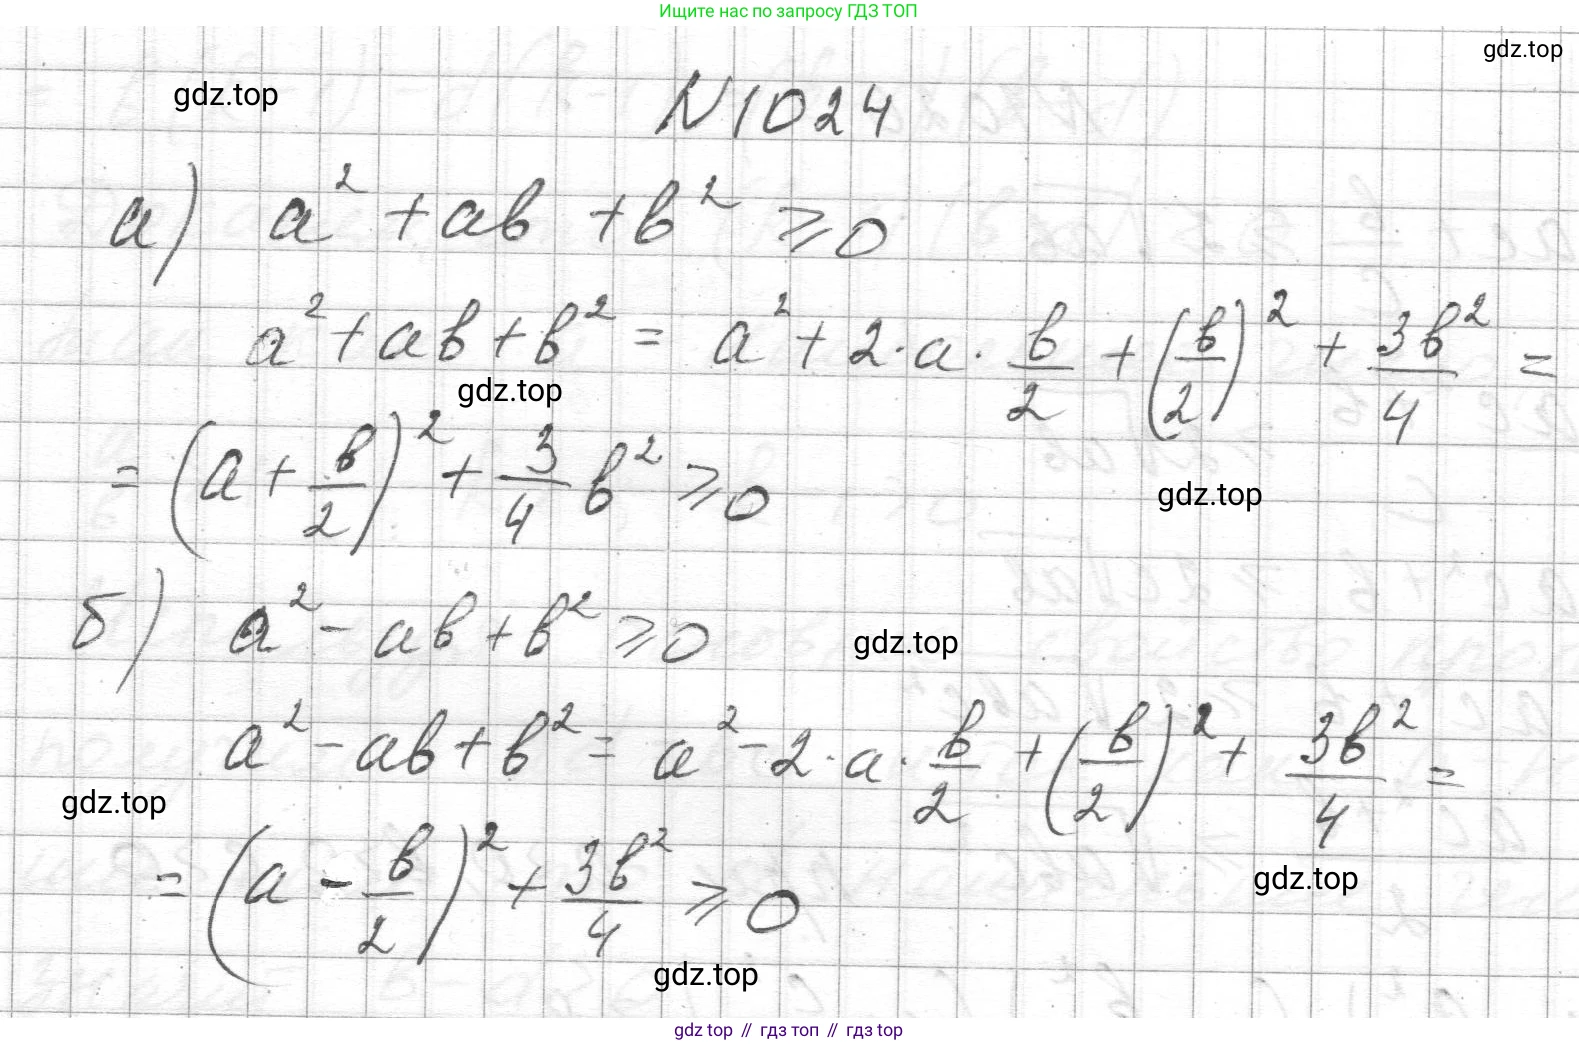 Ищите нас по запросу ГДЗ ТОП
gdz.top
gdz.top
N1024
а) a² + ab + b² ⩾ 0
a² + ab + b² = a² + 2·a·b/2 + (b/2)² + 3b²/4 =
gdz.top
= (a + b/2)² + 3/4 b² ⩾ 0
gdz.top
б) a² - ab + b² ⩾ 0
gdz.top
a² - ab + b² = a² - 2·a·b/2 + (b/2)² + 3b²/4 =
gdz.top
= (a - b/2)² + 3b²/4 ⩾ 0
gdz.top
gdz.top
gdz top // гдз топ // гдз top